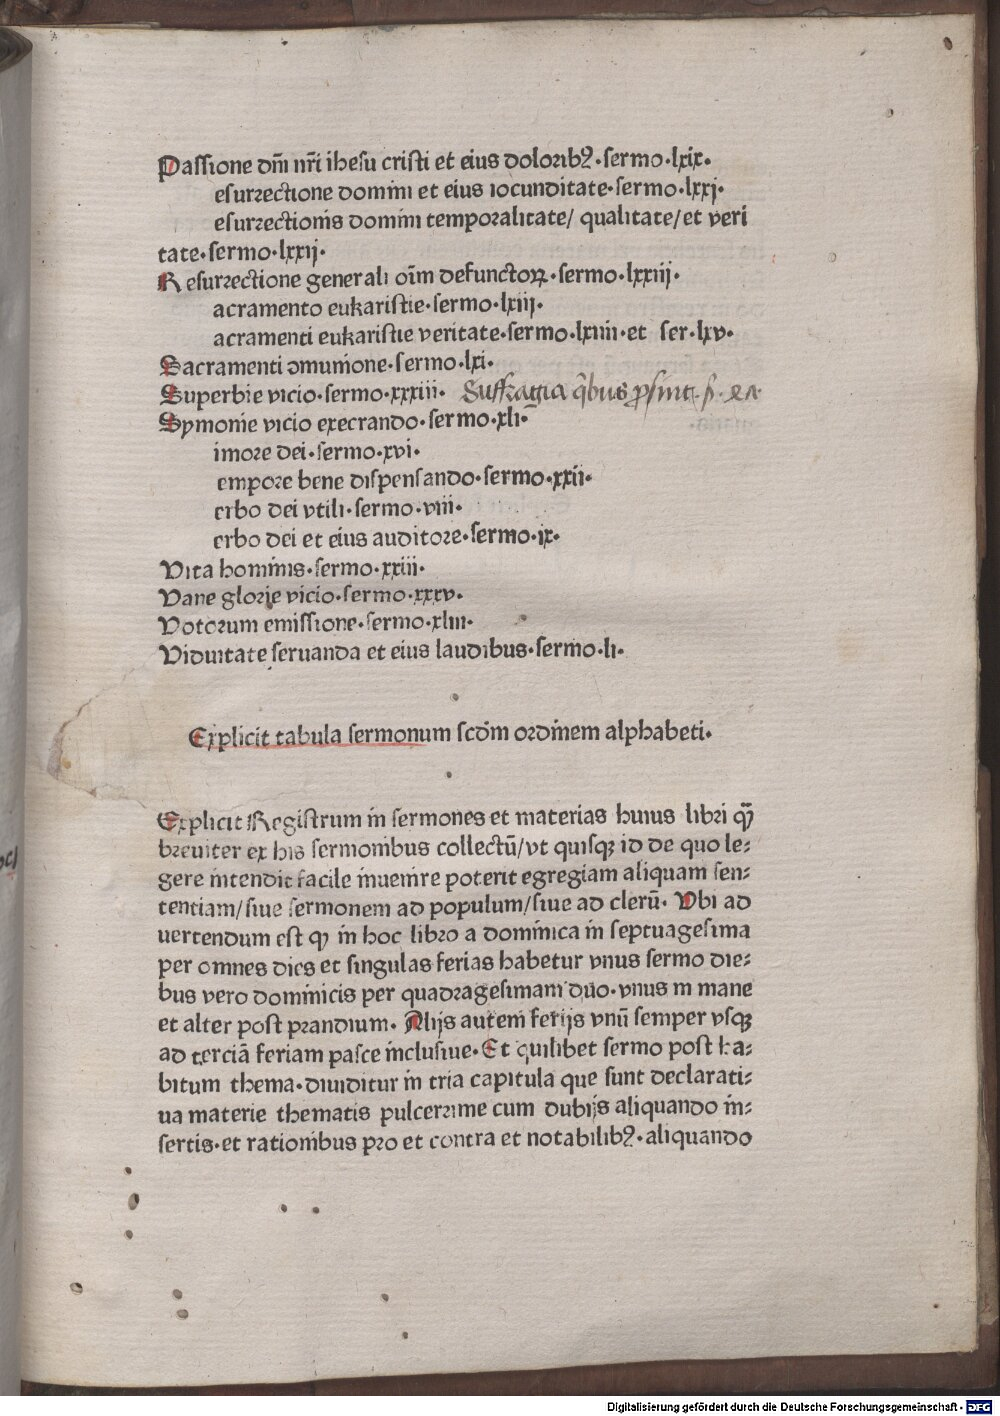 Passione dn̄i nr̄i ihesu cristi et eius doloribꝰ·sermo·lxix·
esurrectione domini et eius iocunditate·sermo·lxxj·
esurrectionis domini temporalitate/ qualitate/et veri
tate·sermo·lxxij·
Resurrectione generali oīm defunctoꝝ·sermo·lxxiij·
acramento eukaristie·sermo·lxiij·
acramenti eukaristie veritate·sermo·lxiiii·et ser·lxv·
Sacramenti ꝯmunione·sermo·lxi·
Superbie vicio·sermo·xxxiii· Suffragia q̄bus ꝓsint·
Symonie vicio execrando·sermo·xli·
imore dei·sermo·xvi·
empore bene dispensando·sermo·xxii·
erbo dei vtili·sermo·viii·
erbo dei et eius auditore·sermo·ix·
Vita hominis·sermo·xxiii·
Vane glorie vicio·sermo·xxxv·
Votorum emissione·sermo·xliii·
Viduitate seruanda et eius laudibus·sermo·li·
Explicit tabula sermonum scd̄m ordinem alphabeti·
Explicit Registrum in sermones et materias huius libri ꝙ̄
breuiter ex his sermonibus collectū/vt quisqꝫ id de quo le⸗
gere intendit facile inuenire poterit egregiam aliquam sen⸗
tentiam/siue sermonem ad populum/siue ad clerū· Vbi ad
uertendum est ꝙ in hoc libro a dominica in septuagesima
per omnes dies et singulas ferias habetur vnus sermo die⸗
bus vero dominicis per quadragesimam duo·vnus in mane
et alter post prandium· Alijs autem ferijs vnū semper vsqꝫ
ad terciā feriam pasce inclusiue·Et quilibet sermo post ha⸗
bitum thema·diuiditur in tria capitula que sunt declarati⸗
ua materie thematis pulcerrime cum dubijs aliquando in⸗
sertis·et rationibus pro et contra et notabilibꝰ·aliquando
Digitalisierung gefördert durch die Deutsche Forschungsgemeinschaft - DFG